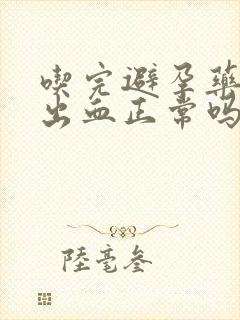 喫完避孕藥
出血正常嗎
陸毫叁